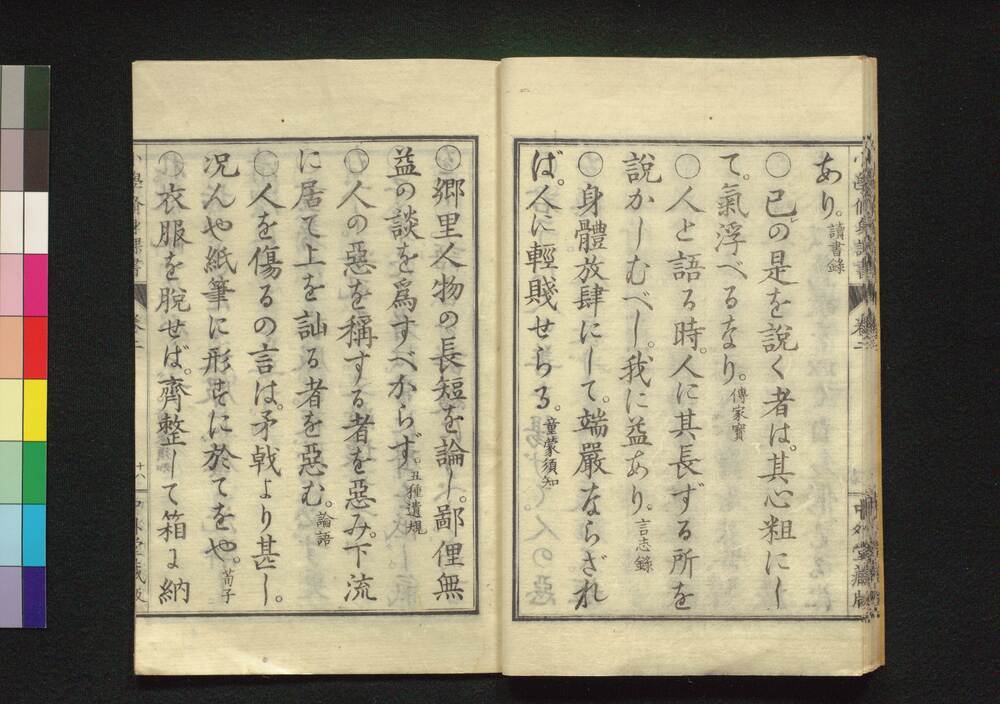 小學脩身課書 卷二 中外堂藏版
あり。讀書錄
○己の是を說く者は。其心粗にし
て。氣浮べるなり。傳家寳
○人と語る時。人に其長ずる所を
說かしむべし。我に益あり。言志錄
○身體放肆にして。端嚴ならざれ
ば。人に輕賤せらる。童蒙須知
○鄕里人物の長短を論し。鄙俚無
益の談を爲すべからず。五種遺規
○人の惡を稱する者を惡み。下流
に居て上を訕る者を惡む。論語
○人を傷るの言は。矛戟より甚し。
况んや紙筆に形すに於てをや。荀子
○衣服を脫せば。齊整して箱に納
卷二 十六